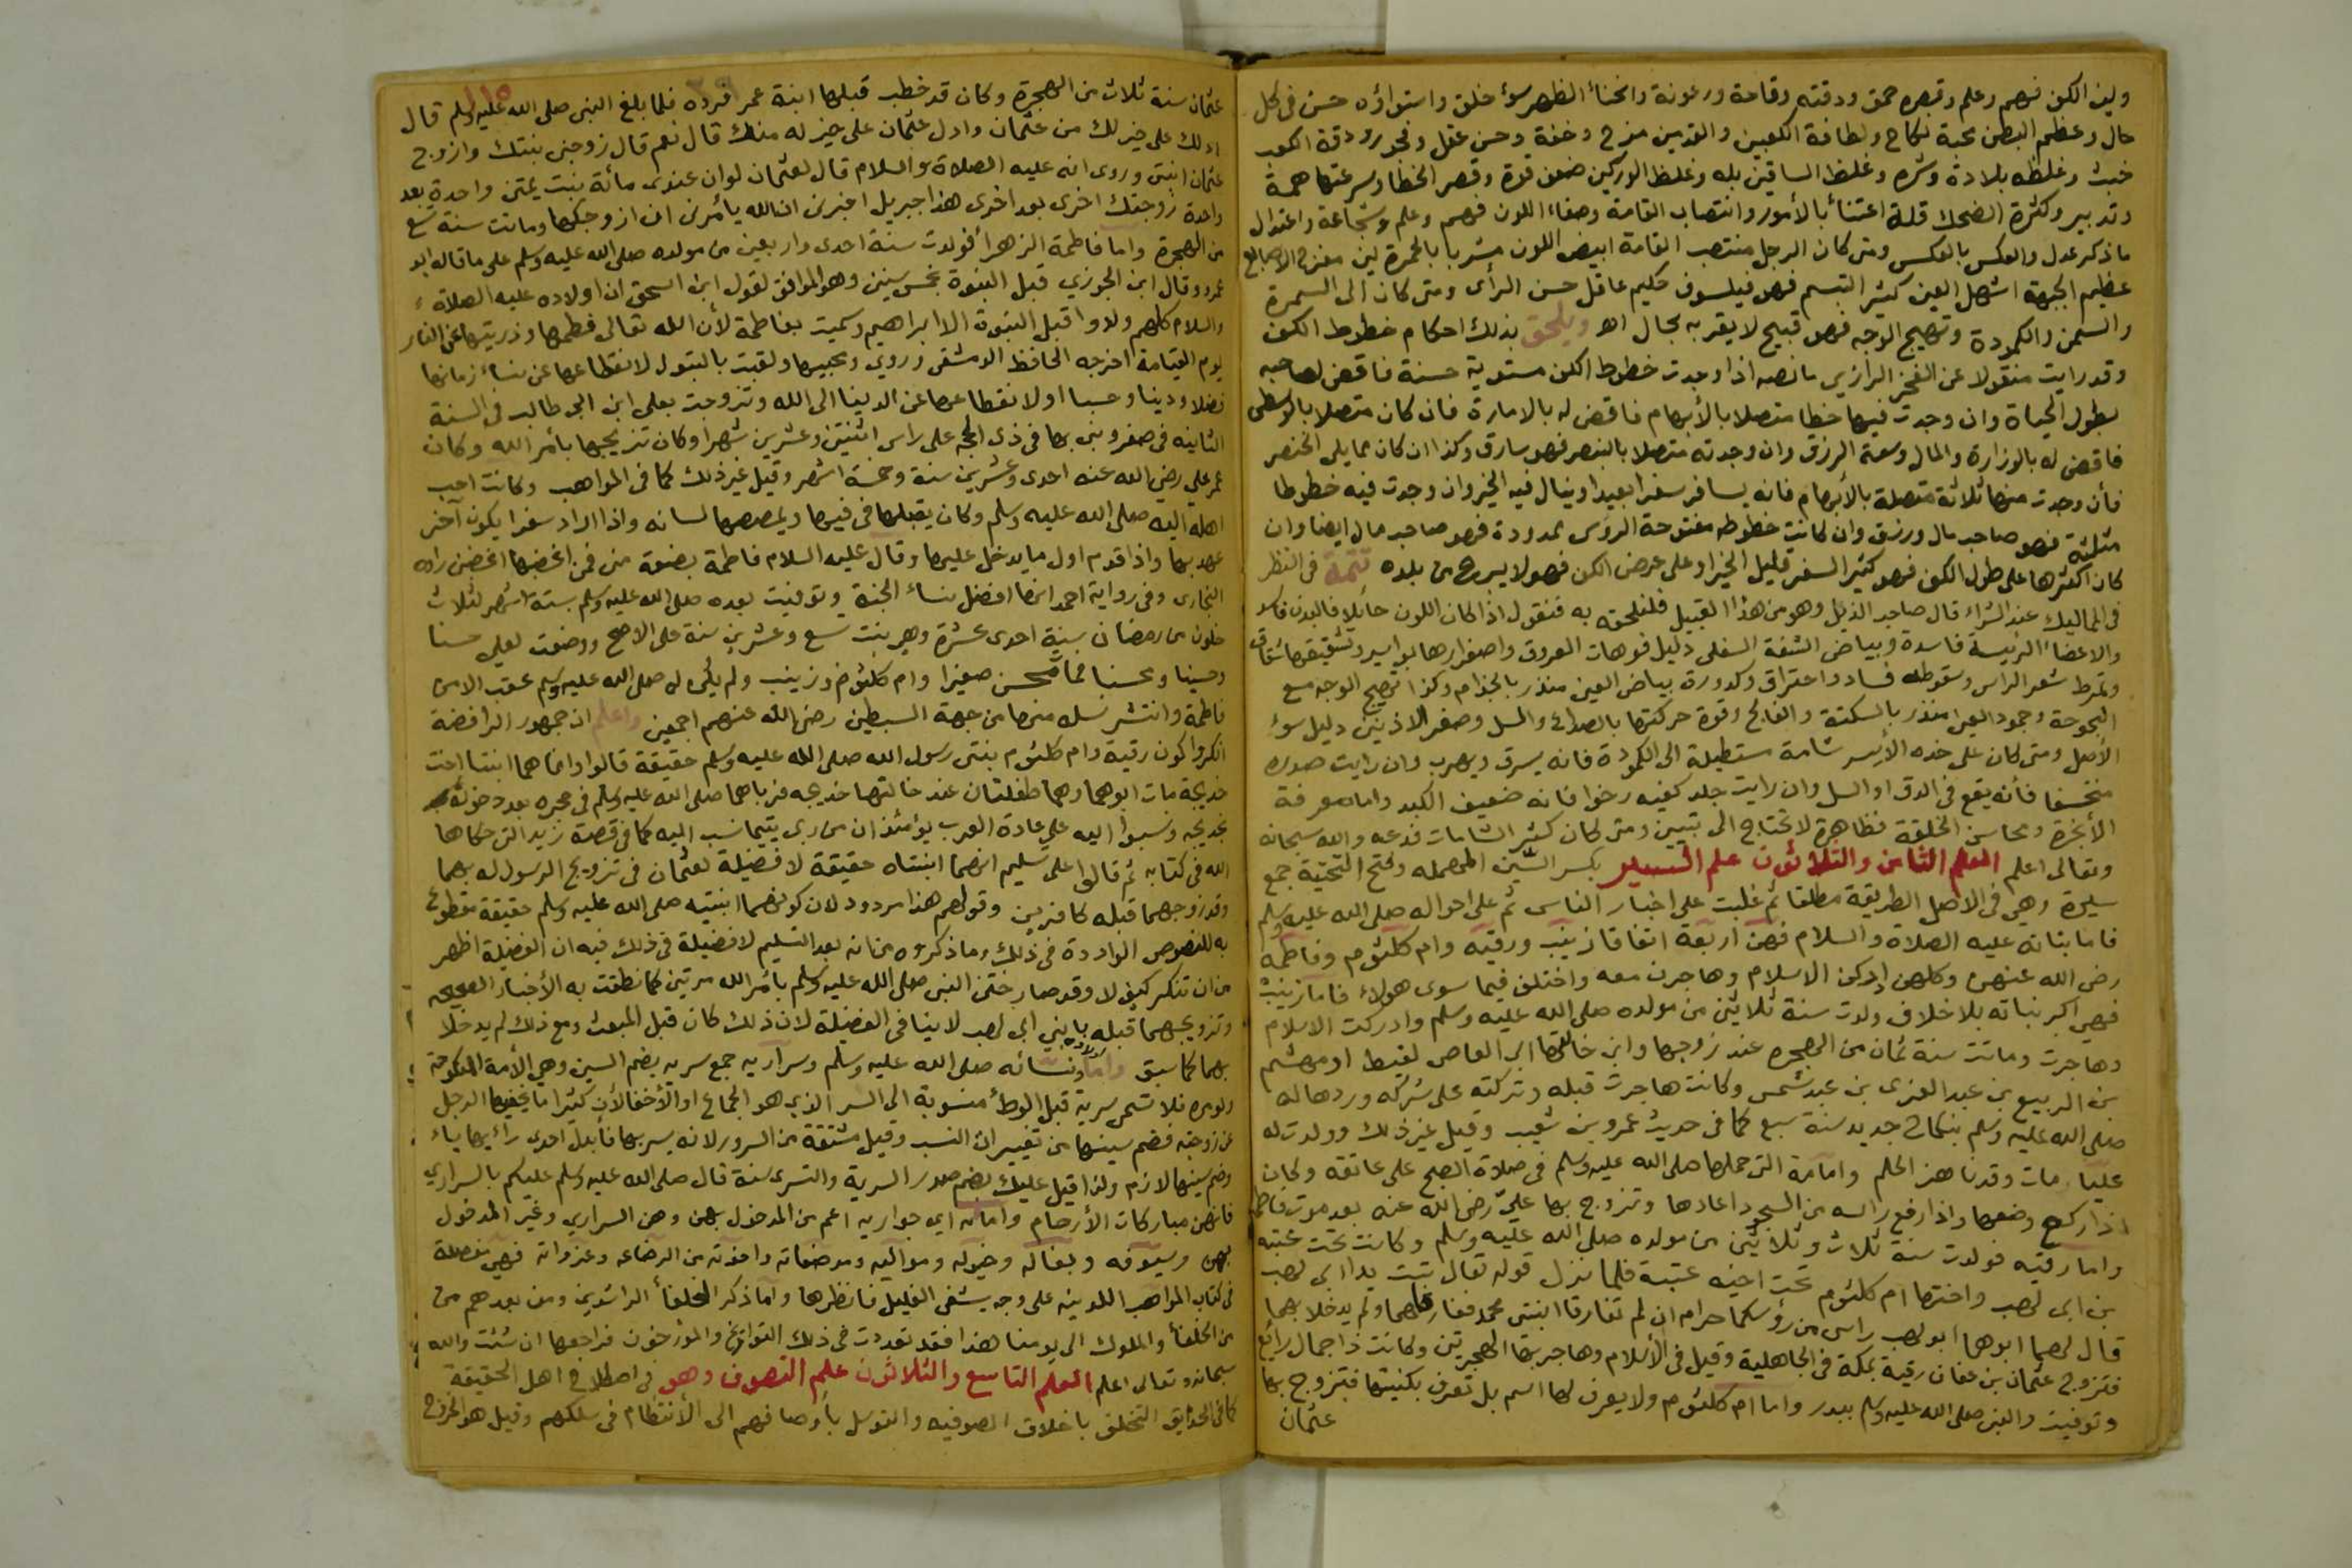 ولين الكف فهم وعلم وقصره حمق ودقته وقاحة ورعونة وانحناء الظهر سوء خلق واستواؤه حسن في كل
حال وعظم البطن محبة نكاح ولطافة الكعبين والقدمين مزح وخفة وحسن عقل وفجور ودقة الكعب
خبث وغلظه بلادة وشره وغلظ الساقين بله وغلظ الوركين ضعف قوة وقصر الخطا وسرعتها همة
وتدبير وكثرة الضحك قلة اعتنأ بالأمور وانتصاب القامة وصفاء اللون فهم وعلم وشجاعة واعتدال
ماذكر عدل والعكس بالعكس ومتى كان الرجل منتصب القامة ابيض اللون مشربا بالحمرة لين مفرج الاصابع
عظيم الجبهة اشهل العين كثير التبسم فهو فيلسوف حكيم عاقل حسن الرأى ومتى كان الى السمرة
والسمن والكمودة وتهيج الوجه فهو قبيح لا يقربه بحال اهـ ويلحق بذلك احكام خطوط الكف
وقد رايت منقولا عن الفخر الرازي مانصه اذا وجدت خطوط الكف مستوية حسنة فاقض لصاحبه
بطول الحياة وان وجدت فيها خطا متصلا بالأبهام فاقض له بالامارة فان كان متصلا بالوسطى
فاقض له بالوزارة والمال وسعة الرزق وان وجدته متصلا بالبنصر فهو سارق وكذا ان كان مما يلى الخنصر
فأن وجدت منها ثلاثة متصلة بالأبهام فانه يسافر سفرا بعيدا وينال فيه الخير وان وجدت فيه خطوطا
مثلثة فهو صاحب مال ورزق وان كانت خطوطه مفتوحة الرؤس ممدودة فهو صاحب مال ايضا وان
كان اكثرها على طول الكف فهو كثير السفر قليل الخير او على عرض الكف فهو لا يبرح من بلده تتمة فى النظر
فى المماليك عند الشراء قال صاحب الذيل وهو من هذا القبيل فلنلحقه به فنقول اذا كان اللون حائلا فالبدن فاسد
والاعضاء الرئيسة فاسدة وبياض الشفة السفلى دليل فوهات العروق واصفرارها بواسير وتشقيقها شقاق
وتمرط شعر الراس وسقوطه فساد واحتراق وكدورة بياض العين منذر بالجذام وكذا تهيج الوجه مع
البحوحة وجمود العين منذر بالسكتة والفالج وقوة حركتها بالصداع والسل وصغر الاذنين دليل سوء
الأصل ومتى كان على خده الأيسر شامة مستطيلة الى الكمودة فانه يسرق ويهرب وان رايت صدره
منخسفا فأنه يقع فى الدق او السل وان رايت جلد كفيه رخوا فانه ضعيف الكبد واما معرفة
الأبخرة ومحاسن الخلقة فظاهرة لا تحتاج الى تبيين ومتى كان كثير الشامات فدعه والله سبحانه
وتعالى اعلم العلم الثامن والثلاثون علم السير بكسر السين المهمله وفتح التحتية جمع
سيرة وهي فى الاصل الطريقة مطلقا ثم غلبت على اخبار الناس ثم على احواله صلى الله عليه وسلم
فاما بناته عليه الصلاة والسلام فهن اربعة اتفاقا زينب ورقيه وام كلثوم وفاطمة
رضى الله عنهن وكلهن ادركن الاسلام وهاجرن معه واختلف فيما سوى هولاء فاما زينب
فهي اكبر بناته بلا خلاف ولدت سنة ثلاثين من مولده صلى الله عليه وسلم وادركت الاسلام
وهاجرت وماتت سنة ثمان من الهجره عند زوجها وابن خالتها ابى العاص لقيط او مهشم
بن الربيع بن عبد العزى بن عبد شمس وكانت هاجرت قبله وتركته على شركه وردها له
صلى الله عليه وسلم بنكاح جديد سنة سبع كما فى حديث عمرو بن شعيب وقيل غير ذلك وولدت له
عليا مات وقد ناهز الحلم وامامة التى حملها صلى الله عليه وسلم فى صلاة الصبح على عاتقه وكان
اذا ركع وضعها واذا رفع راسه من السجود اعادها وتزوج بها علي رضى الله عنه بعد موت فاطمة
واما رقيه فولدت سنة ثلاث وثلاثين من مولده صلى الله عليه وسلم وكانت تحت عتبه
بن ابى لهب واختها ام كلثوم تحت اخيه عتيبة فلما نزل قوله تعالى تبت يدا ابى لهب
قال لهما ابوهما ابو لهب راسى من رؤسكما حرام ان لم تفارقا ابنتى محمد ففارقاهما ولم يدخلا بهما
فتزوج عثمان بن عفان رقية بمكة فى الجاهلية وقيل فى الأسلام وهاجر بها الهجرتين وكانت ذا جمال رائع
وتوفيت والنبى صلى الله عليه وسلم ببدر واما ام كلثوم ولا يعرف لها اسم بل تعرف بكنيتها فتزوج بها
عثمان
١١٥
عثمان سنة ثلاث من الهجرة وكان قد خطب قبلها ابنة عمر فرده فلما بلغ النبى صلى الله عليه وسلم قال
ادلك على خير لك من عثمان وادل عثمان على خير له منك قال نعم قال زوجنى بنتك وازوج
عثمان ابنتى وروى انه عليه الصلاة والسلام قال لعثمان لو ان عندى مائة بنت يمتن واحدة بعد
واحدة زوجتك اخرى بعد اخرى هذا جبريل اخبرنى ان الله يأمرنى ان ازوجكها وماتت سنة تسع
من الهجرة واما فاطمة الزهرأ فولدت سنة احدى واربعين من مولده صلى الله عليه وسلم على ما قاله ابو
عمرو وقال ابن الجوزي قبل النبوة بخمس سنين وهو الموافق لقول ابن اسحق ان اولاده عليه الصلاة
والسلام كلهم ولدوا قبل النبوة الا ابراهيم وسميت بفاطمة لأن الله تعالى فطمها وذريتها عن النار
يوم القيامة اخرجه الحافظ الدمشقى وروي ومحبيها ولقبت بالبتول لانقطاعها عن نساء زمانها
فضلا ودينا وحسبا او لانقطاعها عن الدنيا الى الله وتزوجت بعلى ابن ابى طالب فى السنة
الثانيه فى صفر وبنى بها فى ذى الحجه على راس اثنتين وعشرين شهرا وكان تزويجها بأمر الله وكان
عمر على رضى الله عنه احدى وعشرين سنة وخمسة اشهر وقيل غير ذلك كما فى المواهب وكانت احب
اهله اليه صلى الله عليه وسلم وكان يقبلها فى فيها ويمصها لسانه واذا اراد سفرا يكون آخر
عهد بها واذا قدم اول ما يدخل عليها وقال عليه السلام فاطمة بضعة منى فمن اغضبها اغضبنى رواه
البخارى وفى رواية احمد انها افضل نساء الجنة وتوفيت بعده صلى الله عليه وسلم بستة اشهر لثلاث
خلون من رمضان سنة احدى عشرة وهى بنت تسع وعشرين سنة على الاصح ووضعت لعلى حسنا
وحسينا ومحسنا فمات محسن صغيرا وام كلثوم وزينب ولم يكن له صلى الله عليه وسلم عقب الا من
فاطمة وانتشر نسله منها من جهة السبطين رضى الله عنهم اجمعين واعلم ان جمهور الرافضة
انكروا كون رقية وام كلثوم بنتى رسول الله صلى الله عليه وسلم حقيقة قالوا وانما هما ابنتا اخت
خديجة مات ابوهما وهما طفلتان عند خالتهما خديجه فرباهما صلى الله عليه وسلم فى حجره بعد دخوله
بخديجه ونسبوأ اليه على عادة العرب يؤمئذ ان من ربى يتيما نسب اليه كما فى قصة زيد التى حكاها
الله فى كتابه ثم قالوا على تسليم انهما ابنتاه حقيقة لا فضيلة لعثمان فى تزويج الرسول له بهما
وقد زوجهما قبله كافرين وقولهم هذا مردود لان كونهما ابنتيه صلى الله عليه وسلم حقيقة مقطوع
به للنصوص الواردة فى ذلك وما ذكروه من انه بعد التسليم لا فضيلة فى ذلك فيه ان الفضيلة اظهر
من ان تنكر كيف لا وقد صار ختن النبى صلى الله عليه وسلم بأمر الله مرتين كما نطقت به الأخبار الصحيحه
وتزويجهما قبله بابني ابى لهب لا ينافى الفضيلة لان ذلك كان قبل المبعث ومع ذلك لم يدخلا
بهما كما سبق واما نسائه صلى الله عليه وسلم وسراريه جمع سريه بضم السين وهي الأمة المنكوحة
قبل الوطأ منسوبة الى السر الذى هو الجماع او الأخفا لأن كثيرا ما يخفيها الرجل
عن زوجته فضم سينها من تغييرات النسب وقيل مشتقة من السرور لانه يسر بها فأبدل احدى رأيها ياء
وضم سينها لازم ولذا قيل عليك بضم صدر السرية والتسرى سنة قال صلى الله عليه وسلم عليكم بالسراري
فانهن مباركات الأرحام وامائه اي جواريه اعم من المدخول بهن وهن السراري وغير المدخول
بهن وسيوفه وبغاله وخيوله ومواليه ومرضعاته واخوته من الرضاعه وغزواته فهى مفصلة
فى كتاب المواهب اللدنيه على وجه يشفى الغليل فانظرها واما ذكر الخلفأ الراشدين ومن بعدهم من
من الخلفأ والملوك الى يومنا هذا فقد تعددت فى ذلك التواريخ والمؤرخون فراجعها ان شئت والله
سبحانه وتعالى اعلم العلم التاسع والثلاثون علم التصوف وهو فى اصطلاح اهل الحقيقة
كما فى الحدايق التخلق باخلاق الصوفيه والتوسل بأوصافهم الى الأنتظام فى سلكهم وقيل هو الخروج